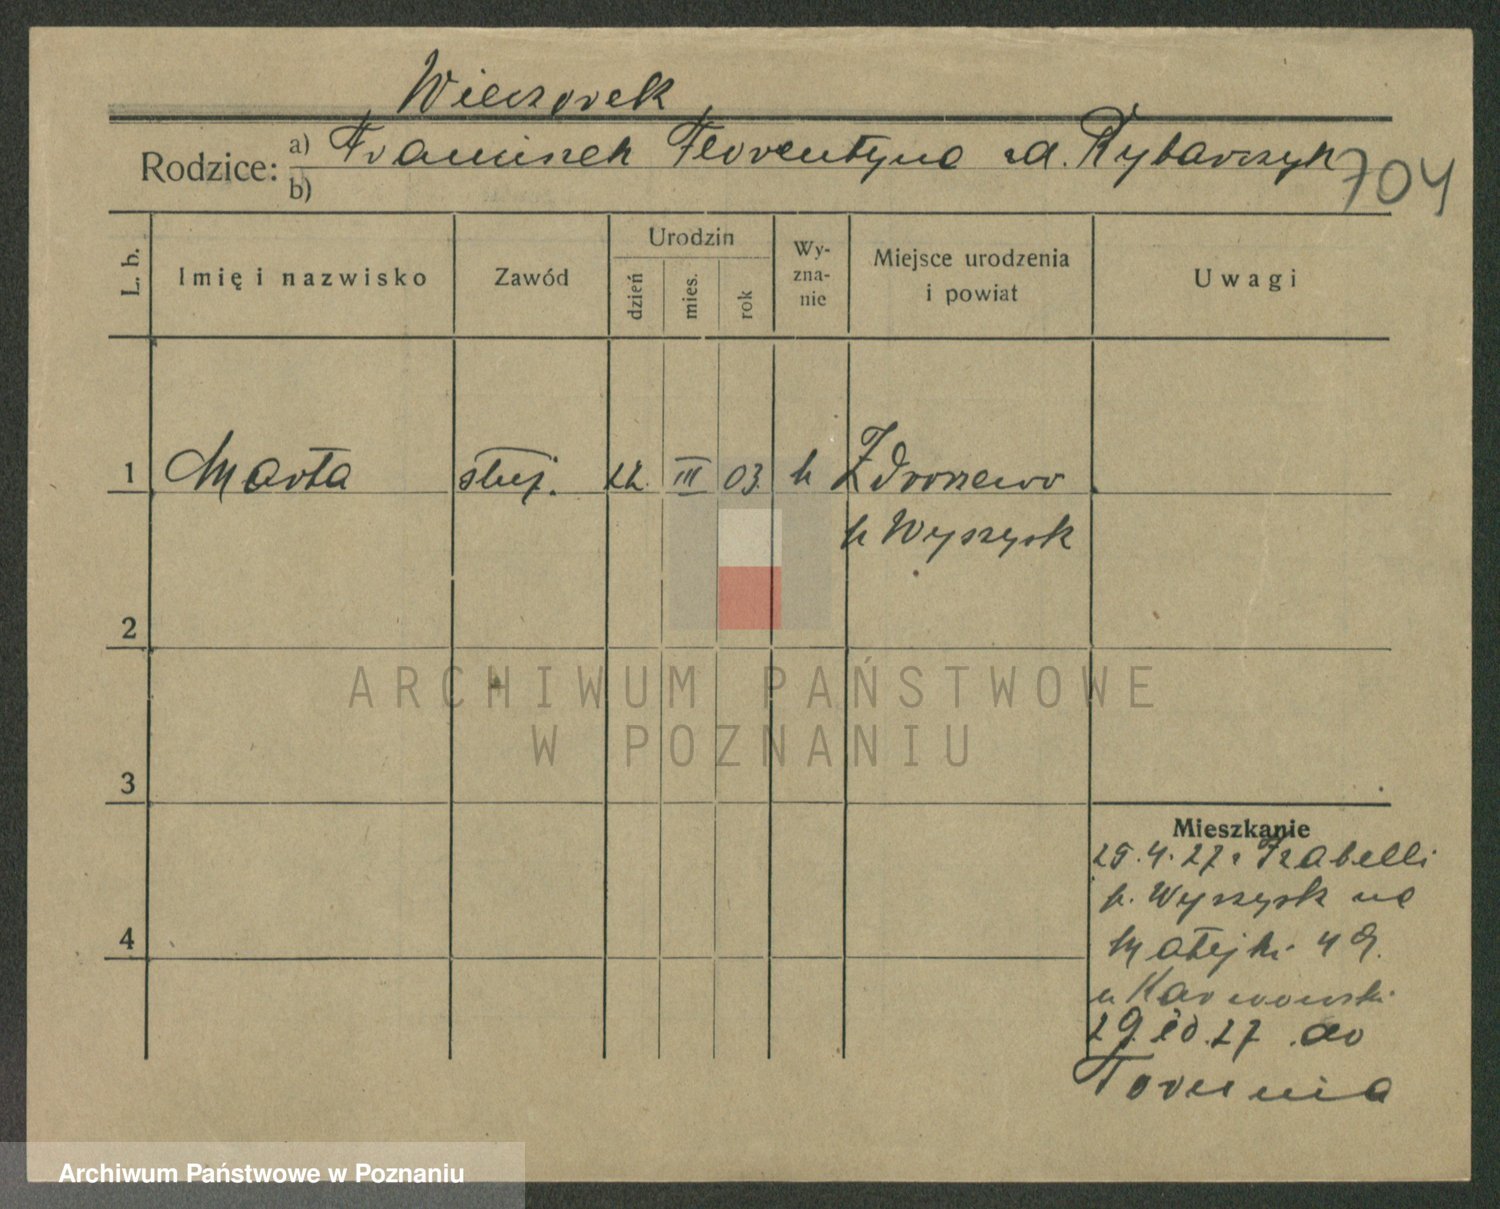 Wieczorek
Rodzice: a) Franciszek Florentyna zd. Rybarczyk
b)
704
L. b.
Imię i nazwisko
Zawód
Urodzin
dzień
mies.
rok
Wy-
zna-
nie
Miejsce urodzenia
i powiat
Uwagi
1 Marta służ. 22. III 03. k Zdroszewo
p. Wyrzysk
2
ARCHIWUM PAŃSTWOWE
W POZNANIU
3
4
Mieszkanie
25.4.27 z Izabelli
p. Wyrzysk na
Matejki 49.
u Karwowski
29.10.27 do
Torunia
Archiwum Państwowe w Poznaniu